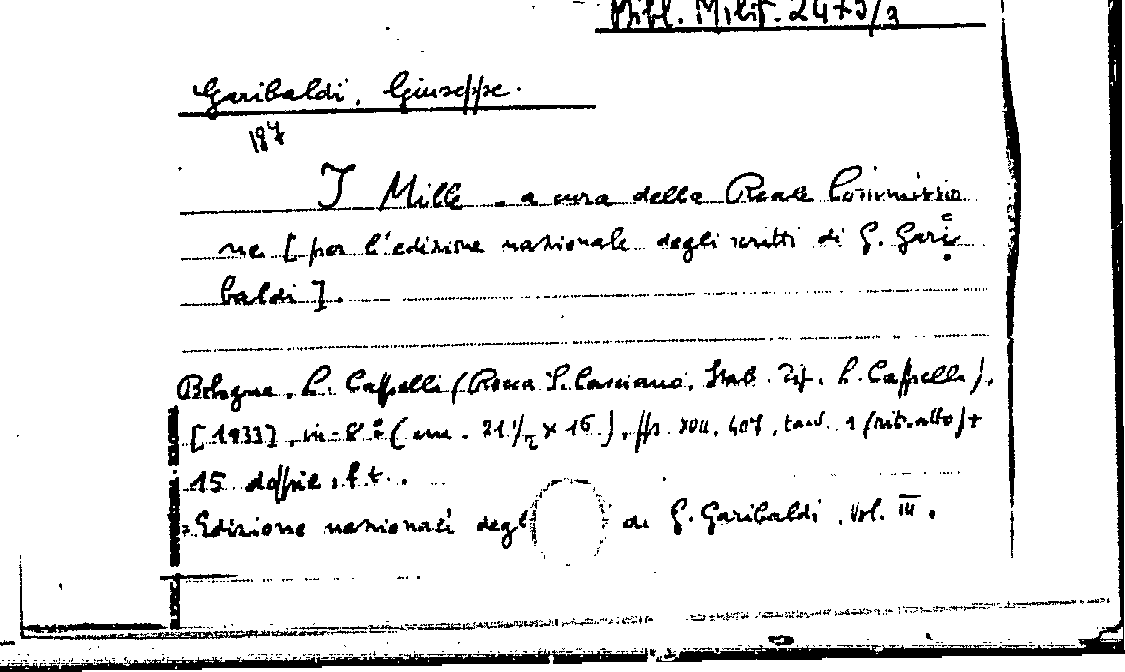 Bibl. Milit. 2475/3
Garibaldi, Giuseppe.
187
I Mille - a cura della Reale Commissio
ne [per l'edizione nazionale degli scritti di G. Gari
baldi].
Bologna, L. Cappelli (Rocca S. Casciano, Stab. Tip. L. Cappelli),
[1933], in-8° (cm. 21 1/2 x 16), pp. XVII, 407, tav. 1 (ritratto) +
15 doppie, f.t.
=Edizione nazionali degl di G. Garibaldi, Vol. III.